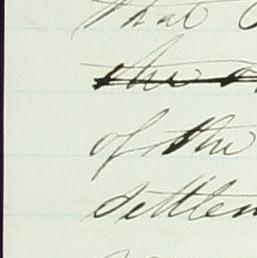 that
the
of the
settlem